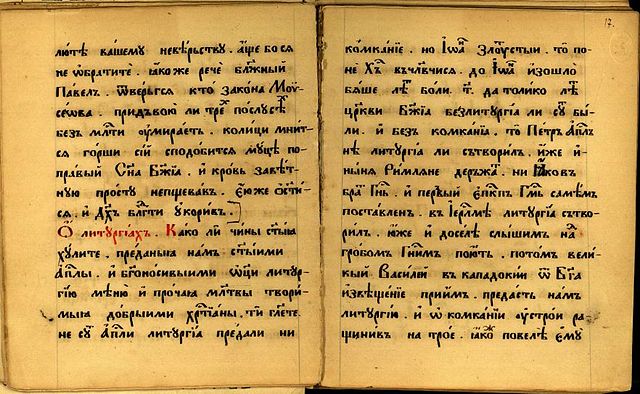 лютѣ вашему невѣрьству . аще бося
не ѡбратите . ꙗкоже рече блж҃ный
Павелъ . ѿвергъсѧ кто закона Моѵ
сеѡва . придъвою ли трех̾ послусѣ
безъ млⷭ҇ти оумираетъ . колици мнит
сѧ горши сїй сподобитсѧ муцѣ по
правый Сн҃а Бж҃їѧ . и҆ кровь завѣт
ную просту непщевавъ . Ею҆же ѡ҆ст҃и
сѧ . и҆ Дх҃ъ блг҃ти укоривъ .
Ѻ литургїѧхъ . Како ли҆ чины ст҃ыѧ
хулите . преданыѧ намъ ст҃ыими
Ап҃лы . и҆ бг҃оносивыими ѿц҃и литур
гїю меню и҆ прочаѧ мл҃твы твори
мыѧ добрыими хрⷭ҇тїаны . ти гл҃ете
не суⷮ Ап҃ли литургїѧ предали ни
17
комканїе . но Іѡ҃а Златоустыи . то по
не Х҃а въчл҃вчисѧ . до Іѡ҃а изошло
бѧше лѣⷮ боли . т҃ . да толико лѣⷮ
цр҃кви Бж҃їѧ безлитургїа ли суⷮ бы
ли . и҆ без комканїа . то Петръ Ап҃лъ
нѣ литургїа ли сътворилъ . и҆же и҆
ныня Римляне держаⷮ . ни Іаковъ
браⷮ Гн҃ь . и҆ первый Еп҃кпъ Гм҃ь самѣмъ
поставленъ . въ Іер҃лмѣ литургїа сътво
рилъ . ю҆же и҆ доселѣ слышимъ наⷣ
гробомъ Гн҃имъ поюⷮ . потомъ вели
кый Василей въ кападокии ѿ Бг҃а
и҆звѣщенїе приимъ . предасть намъ
литургїю . и҆ ѡ҆ комканїи ѹ҆строи ра
щинивъ на трое . ꙗ҆ко повелѣ Е҆му